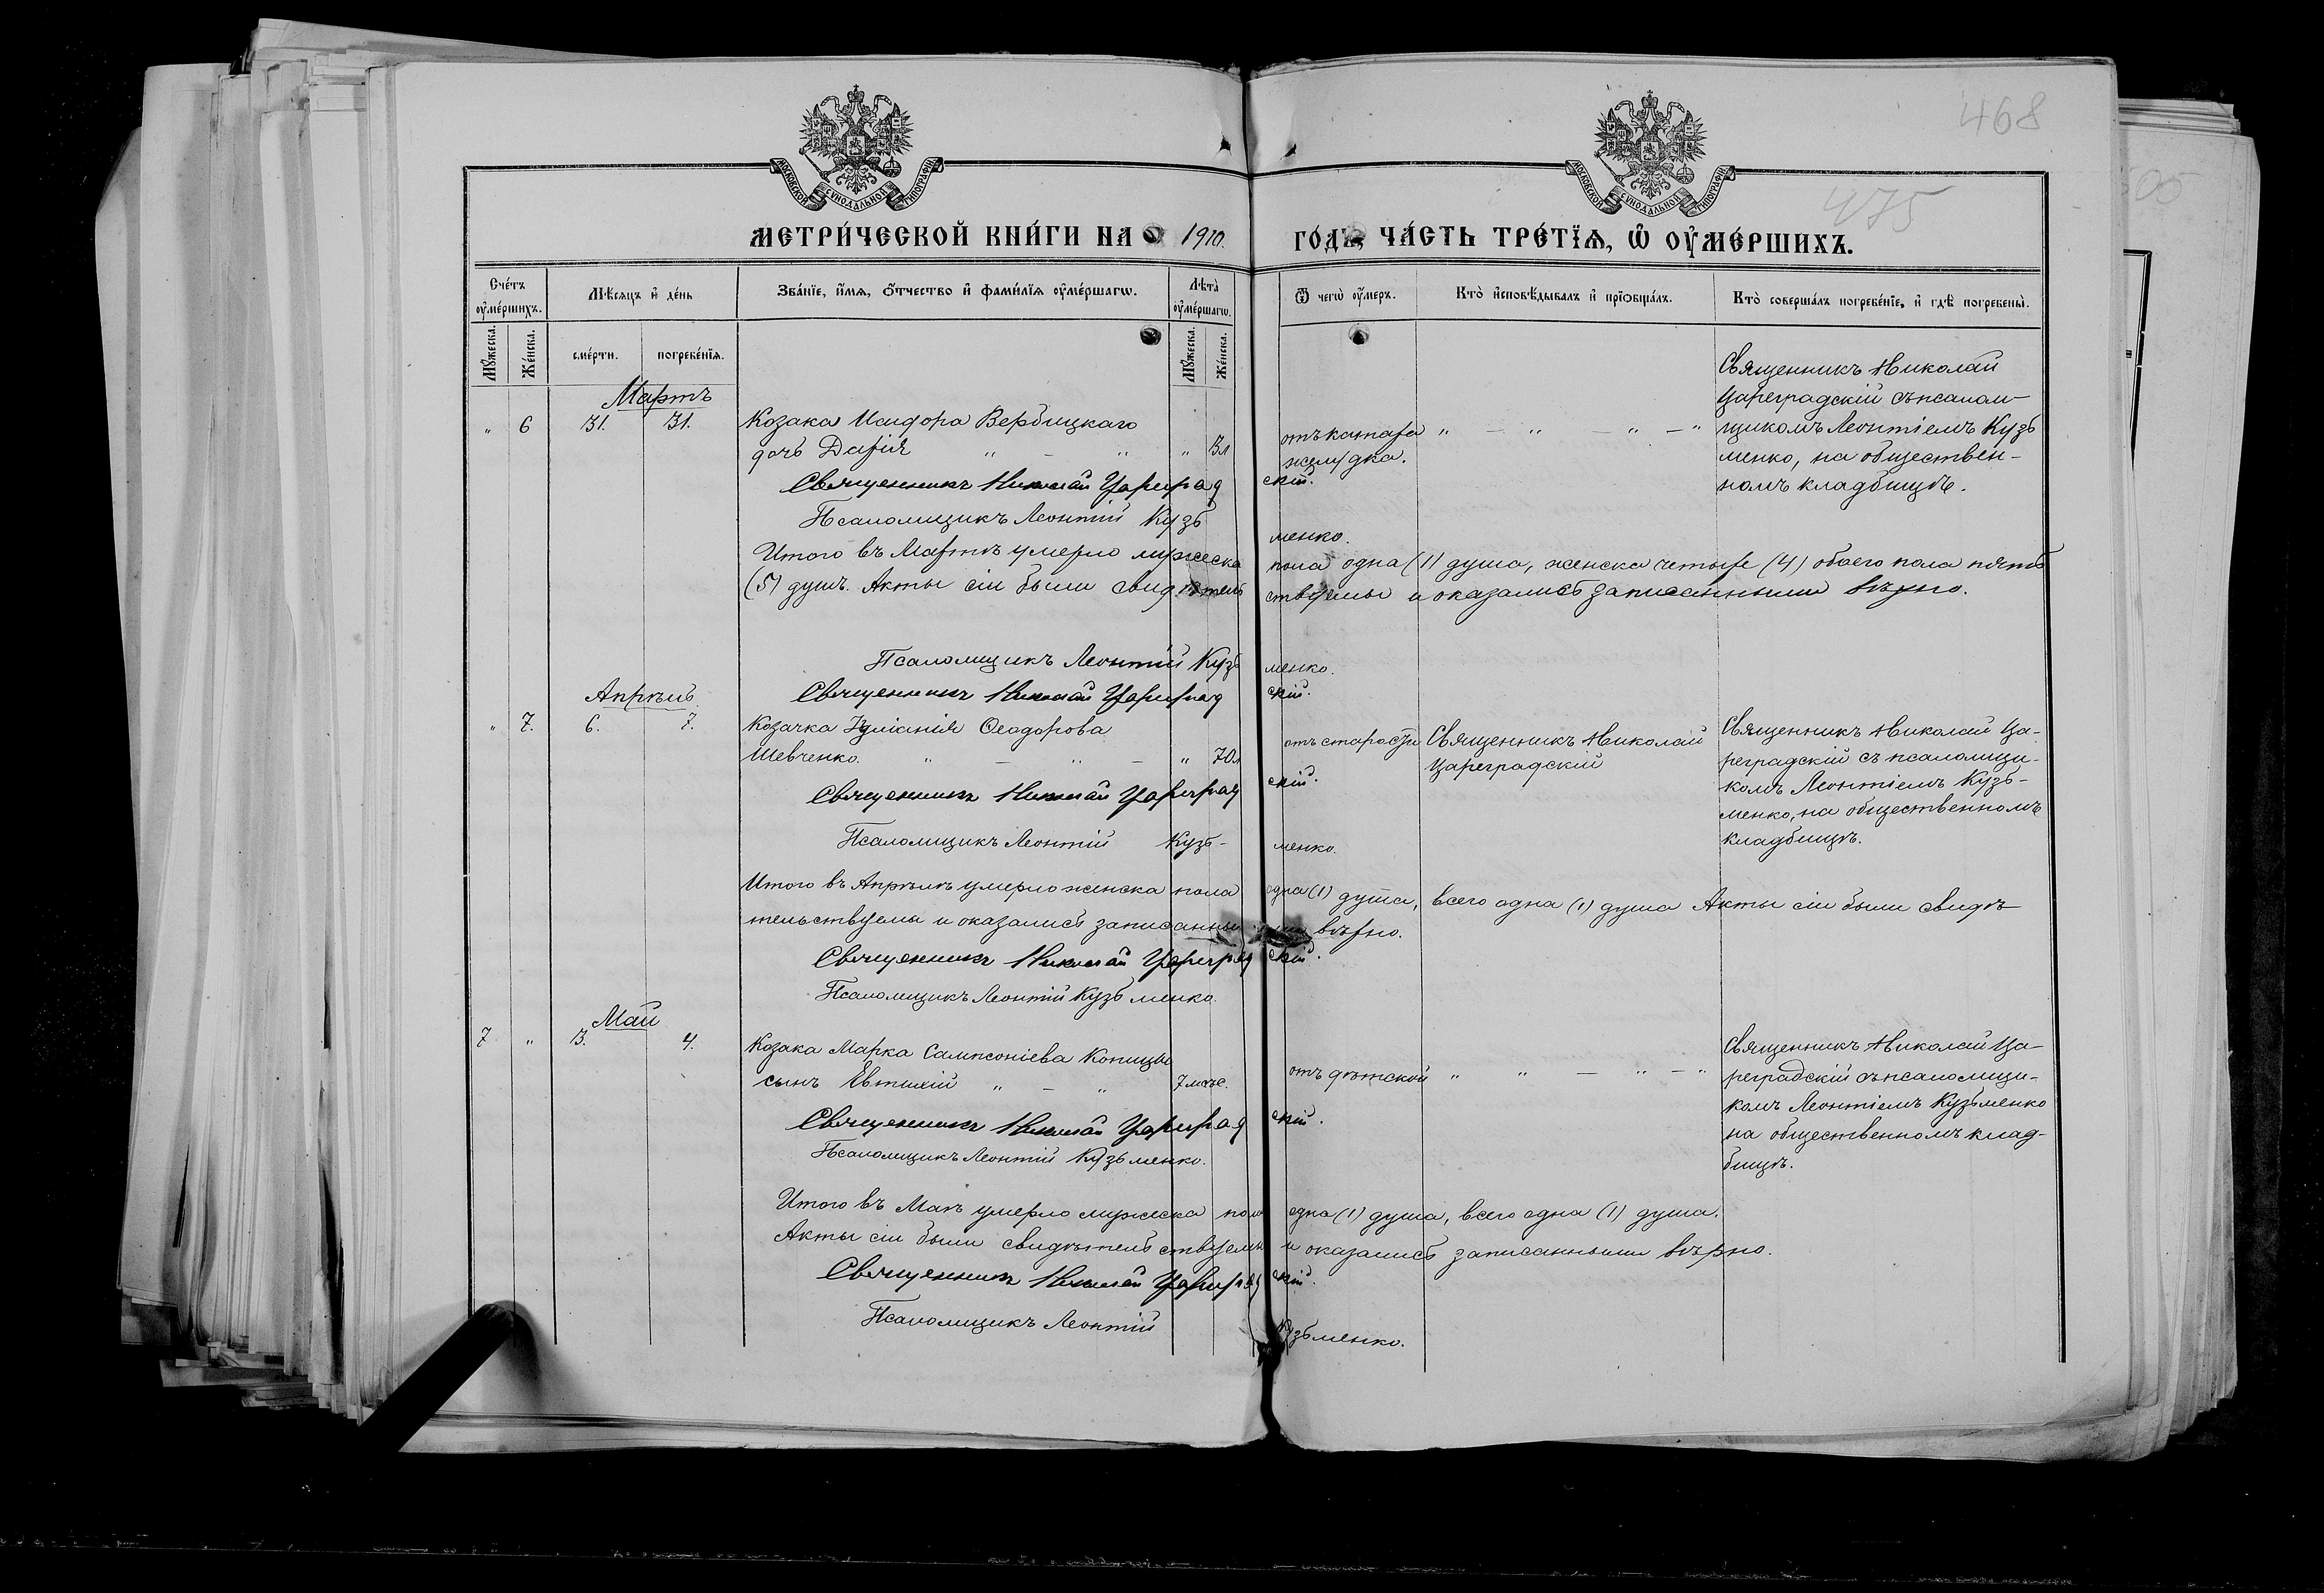 468
475
505
МОСКОВСКОЙ СУНОДАЛЬНОЙ ТИПОГРАФІИ
МОСКОВСКОЙ СУНОДАЛЬНОЙ ТИПОГРАФІИ
МЕТРИ́ЧЕСКОЙ КНИ́ГИ НА 1910. ГО́ДЪ, ЧА́СТЬ ТРЕ́ТЇѦ, Ѡ҆ ОУ҆МЕ́РШИХЪ.
Сче́тъ оу҆ме́ршихъ.
Мѣ́сѧцъ и҆ де́нь
Зва́нїе, и҆́мѧ, ѻ҆́тчество и҆ фами́лїѧ оу҆ме́ршагѡ.
Лѣ́та оу҆ме́ршагѡ.
Ѿ чегѡ̀ оу҆́меръ.
Кто̀ и҆сповѣ́дывалъ и҆ прїѻбща́лъ.
Кто̀ соверша́лъ погребе́нїе, и҆ гдѣ̀ погребены̀.
Мꙋ́жеска.
Же́нска.
сме́рти.
погребе́нїѧ.
Мꙋ́жеска.
Же́нска.
Мартъ
" 6 31. 31. Козака Исидора Вербицкаго
дочь Дарія " – " " 3л
отъ катара
желудка.
" – " – " – "
Священникъ Николай
Цареградскій съ псалом-
щикомъ Леонтіемъ Кузь
менко, на обществен-
номъ кладбищѣ.
Священникъ Николай Цареградскій.
Псаломщикъ Леонтій Кузьменко.
Итого въ Мартѣ умерло мужеска пола одна (1) душа, женска четыре (4) обоего пола пять
(5) душъ. Акты сіи были свидѣтельствуемы и оказались записанными вѣрно.
Псаломщикъ Леонтій Кузьменко.
Священникъ Николай Цареградскій.
Апрѣль.
" 7. 6. 7. Козачка Іуліанія Ѳеодорова
Шевченко. " – " – " 70л
отъ старости
Священникъ Николай
Цареградскій
Священникъ Николай Ца-
реградскій съ псаломщи-
комъ Леонтіемъ Кузь-
менко, на общественномъ
кладбищѣ.
Священникъ Николай Цареградскій.
Псаломщикъ Леонтій Кузь-менко.
Итого въ Апрѣлѣ умерло женска пола одна (1) душа, всего одна (1) душа Акты сіи были свидѣ-
тельствуемы и оказались записанными вѣрно.
Священникъ Николай Цареградскій.
Псаломщикъ Леонтій Кузьменко.
Май
7 " 3. 4. Козака Марка Сампсоніева Копицы
сынъ Евтихій " – " 7 мѣс.
отъ дѣтской
" " – " – "
Священникъ Николай Ца-
реградскій съ псаломщи-
комъ Леонтіемъ Кузьменко
на общественномъ клад-
бищѣ.
Священникъ Николай Цареградскій.
Псаломщикъ Леонтій Кузьменко.
Итого въ Маѣ умерло мужеска пола одна (1) душа, всего одна (1) душа.
Акты сіи были свидѣтельствуемы и оказались записанными вѣрно.
Священникъ Николай Цареградскій.
Псаломщикъ Леонтій Кузьменко.